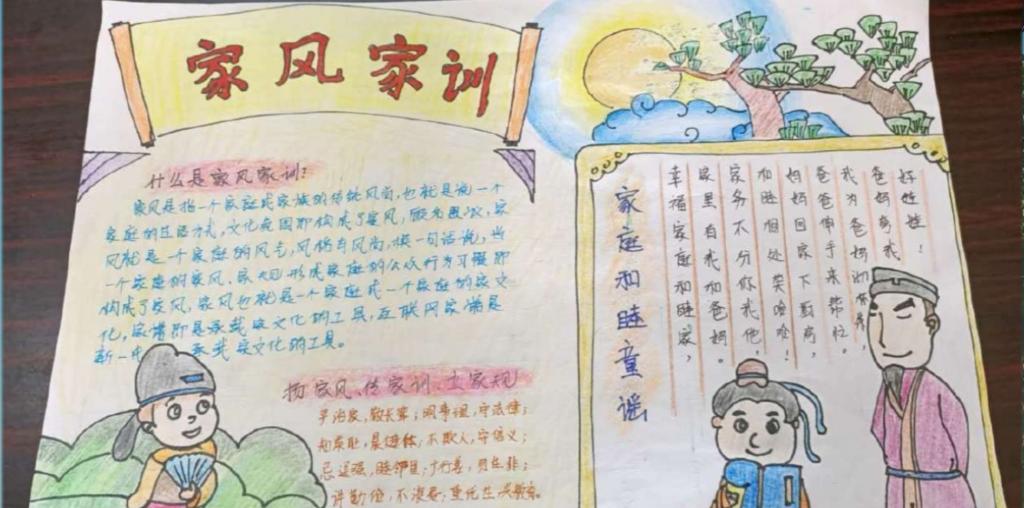 家风家训
什么是家风家训?
家风是指一个家庭或家族的传统风尚,也就是说一个
家庭的生活方式,文化氛围即构成了家风,顾名思义,家
风就是一个家庭的风气,风格与风尚,换一句话说,当
一个家庭的家风、家规形成家庭的公众行为习惯即
构成了家风,家风也就是一个家庭或一个家庭的家文
化,家谱即是承载家文化的工具,互联网家谱是
新一代 承载家文化的工具。
扬家风、传家训、立家规
孝治家,敬长辈;
知荣耻,
不欺人,守信义;
睦邻里;
家庭和睦童谣
幸福家庭和睦家,
家里有我和爸妈。
家务不分你我他,
和睦相处笑哈哈!
妈妈回家下厨房,
爸爸伸手来帮忙。
我为爸妈
爸妈夸我
好娃娃!